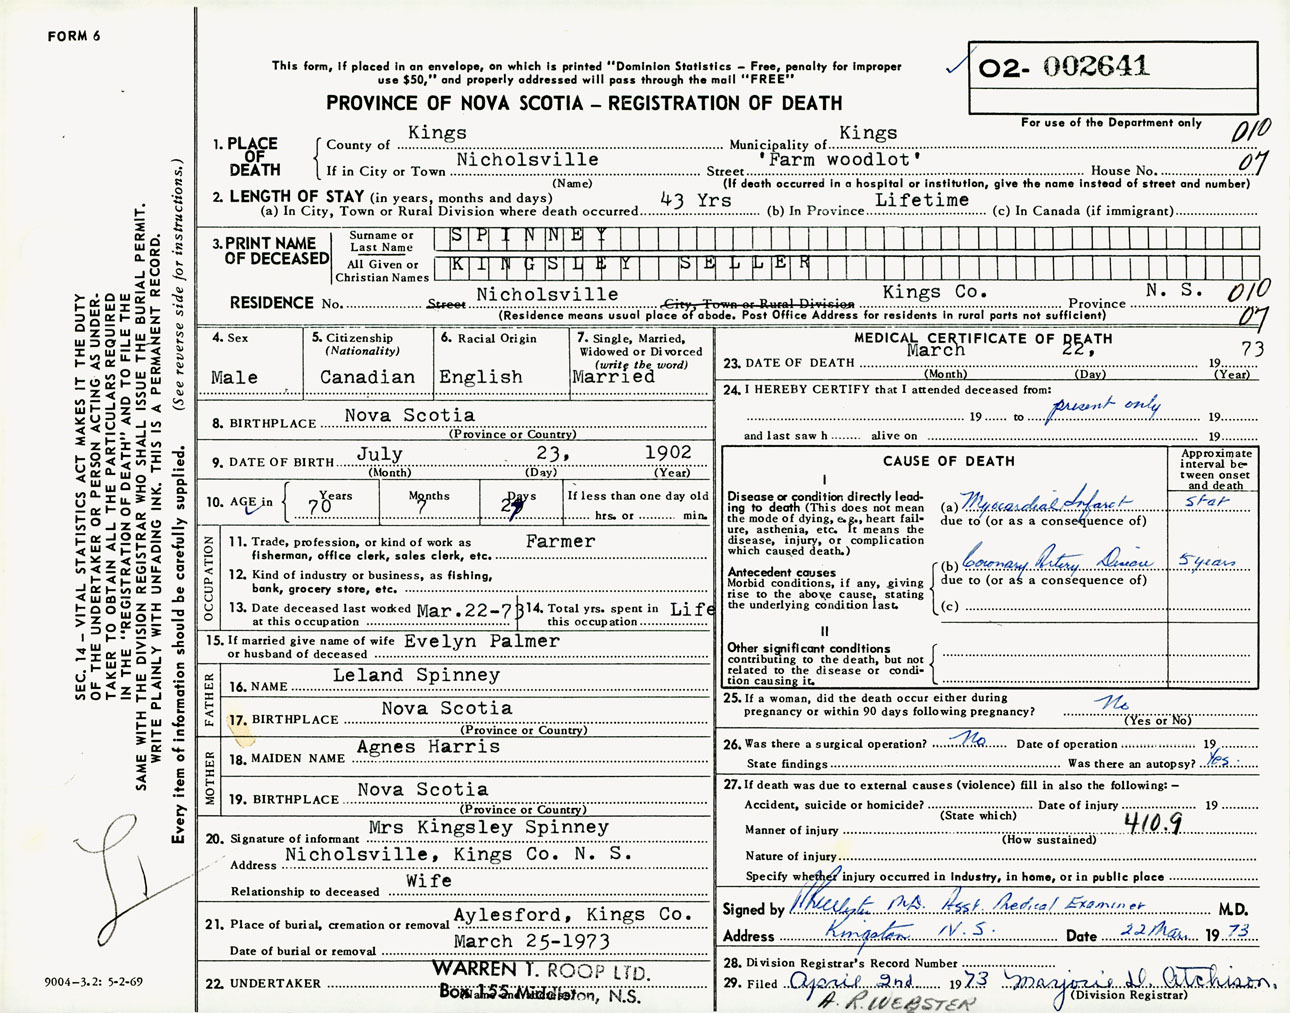 FORM 6
This form, if placed in an envelope, on which is printed "Dominion Statistics – Free, penalty for improper
use $50," and properly addressed will pass through the mail "FREE"
PROVINCE OF NOVA SCOTIA – REGISTRATION OF DEATH
02- 002641
For use of the Department only
010
07
SEC. 14 – VITAL STATISTICS ACT MAKES IT THE DUTY
OF THE UNDERTAKER OR PERSON ACTING AS UNDER-
TAKER TO OBTAIN ALL THE PARTICULARS REQUIRED
IN THE "REGISTRATION OF DEATH" AND TO FILE THE
SAME WITH THE DIVISION REGISTRAR WHO SHALL ISSUE THE BURIAL PERMIT.
WRITE PLAINLY WITH UNFADING INK. THIS IS A PERMANENT RECORD.
Every item of information should be carefully supplied. (See reverse side for instructions.)
1. PLACE OF DEATH
County of Kings Municipality of Kings
If in City or Town Nicholsville Street 'Farm woodlot' House No.
(Name) (If death occurred in a hospital or institution, give the name instead of street and number)
2. LENGTH OF STAY (in years, months and days)
(a) In City, Town or Rural Division where death occurred 43 Yrs (b) In Province Lifetime (c) In Canada (if immigrant)
3. PRINT NAME OF DECEASED
Surname or Last Name SPINNEY
All Given or Christian Names KINGSLEY SELLER
RESIDENCE No. Street Nicholsville City, Town or Rural Division Kings Co. Province N. S. 010
(Residence means usual place of abode. Post Office Address for residents in rural parts not sufficient) 07
4. Sex
Male
5. Citizenship
(Nationality)
Canadian
6. Racial Origin
English
7. Single, Married,
Widowed or Divorced
(write the word)
Married
8. BIRTHPLACE Nova Scotia
(Province or Country)
9. DATE OF BIRTH July 23, 1902
(Month) (Day) (Year)
10. AGE in Years 70 Months 7 Days If less than one day old
hrs. or min.
OCCUPATION
11. Trade, profession, or kind of work as
fisherman, office clerk, sales clerk, etc. Farmer
12. Kind of industry or business, as fishing,
bank, grocery store, etc.
13. Date deceased last worked
at this occupation Mar.22-73
14. Total yrs. spent in
this occupation Life
15. If married give name of wife
or husband of deceased Evelyn Palmer
FATHER
16. NAME Leland Spinney
17. BIRTHPLACE Nova Scotia
(Province or Country)
MOTHER
18. MAIDEN NAME Agnes Harris
19. BIRTHPLACE Nova Scotia
(Province or Country)
20. Signature of informant Mrs Kingsley Spinney
Address Nicholsville, Kings Co. N. S.
Relationship to deceased Wife
21. Place of burial, cremation or removal Aylesford, Kings Co.
Date of burial or removal March 25-1973
22. UNDERTAKER WARREN T. ROOP LTD.
Box 155 Middleton, N.S.
9004-3.2: 5-2-69
MEDICAL CERTIFICATE OF DEATH
23. DATE OF DEATH March 22, 19 73
(Month) (Day) (Year)
24. I HEREBY CERTIFY that I attended deceased from:
19 to present only 19
and last saw h alive on 19
CAUSE OF DEATH
Approximate interval be-
tween onset and death
I
Disease or condition directly lead-
ing to death (This does not mean
the mode of dying, e.g., heart fail-
ure, asthenia, etc. It means the
disease, injury, or complication
which caused death.)
(a) Myocardial Infarct stat
due to (or as a consequence of)
Antecedent causes
Morbid conditions, if any, giving
rise to the above cause, stating
the underlying condition last.
(b) Coronary Artery Disease 5 years
due to (or as a consequence of)
(c)
II
Other significant conditions
contributing to the death, but not
related to the disease or condi-
tion causing it.
25. If a woman, did the death occur either during
pregnancy or within 90 days following pregnancy? No
(Yes or No)
26. Was there a surgical operation? No Date of operation 19
State findings Was there an autopsy? Yes
27. If death was due to external causes (violence) fill in also the following: –
Accident, suicide or homicide? Date of injury 19
(State which)
Manner of injury 410.9
(How sustained)
Nature of injury
Specify whether injury occurred in industry, in home, or in public place
Signed by M.D. Asst. Medical Examiner M.D.
Address Kingston N.S. Date 22 Mar. 19 73
28. Division Registrar's Record Number
29. Filed April 2nd 19 73 Marjorie D. Atchison.
(Division Registrar)
A. R. WEBSTER